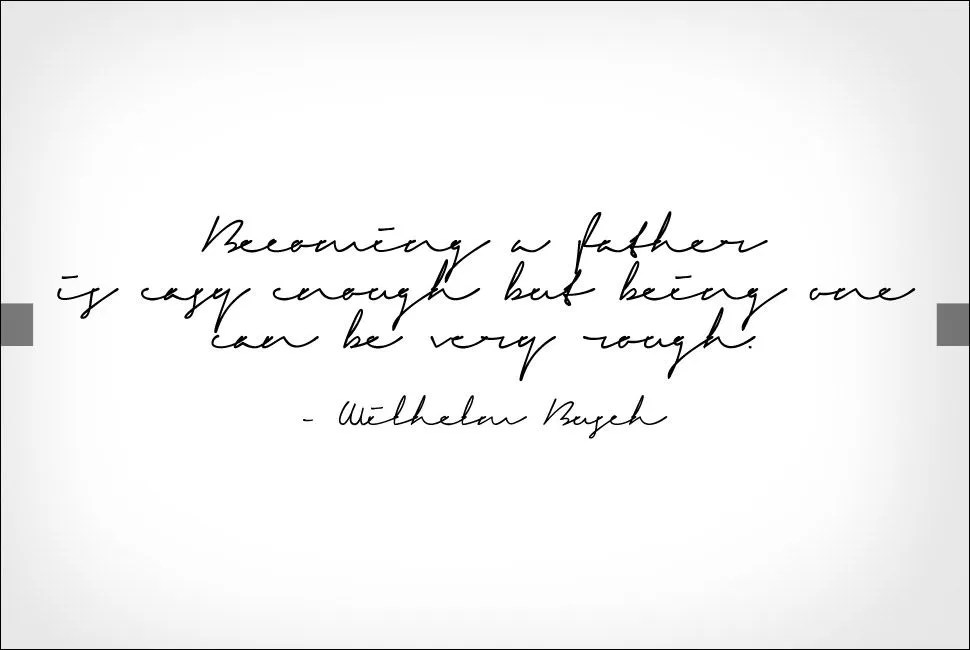 Becoming a father
is easy enough but being one
can be very rough.
- Wilhelm Busch